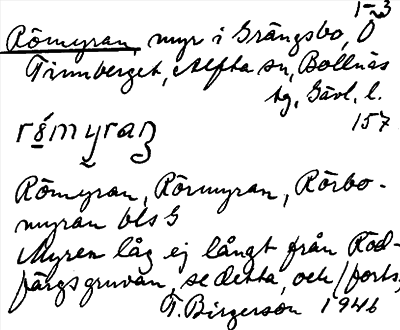 1-3
Römyran, myr i Grängsbo, Ö
Tinnberget, Alfta sn, Bollnäs
tg, Gävl. l.
157
römyraŋ
Römyran, Rörmyran, Rörbo-
myran bls G
Myren låg ej långt från Röd-
färgsgruvan, se detta, och /forts.
T. Birgerson 1946